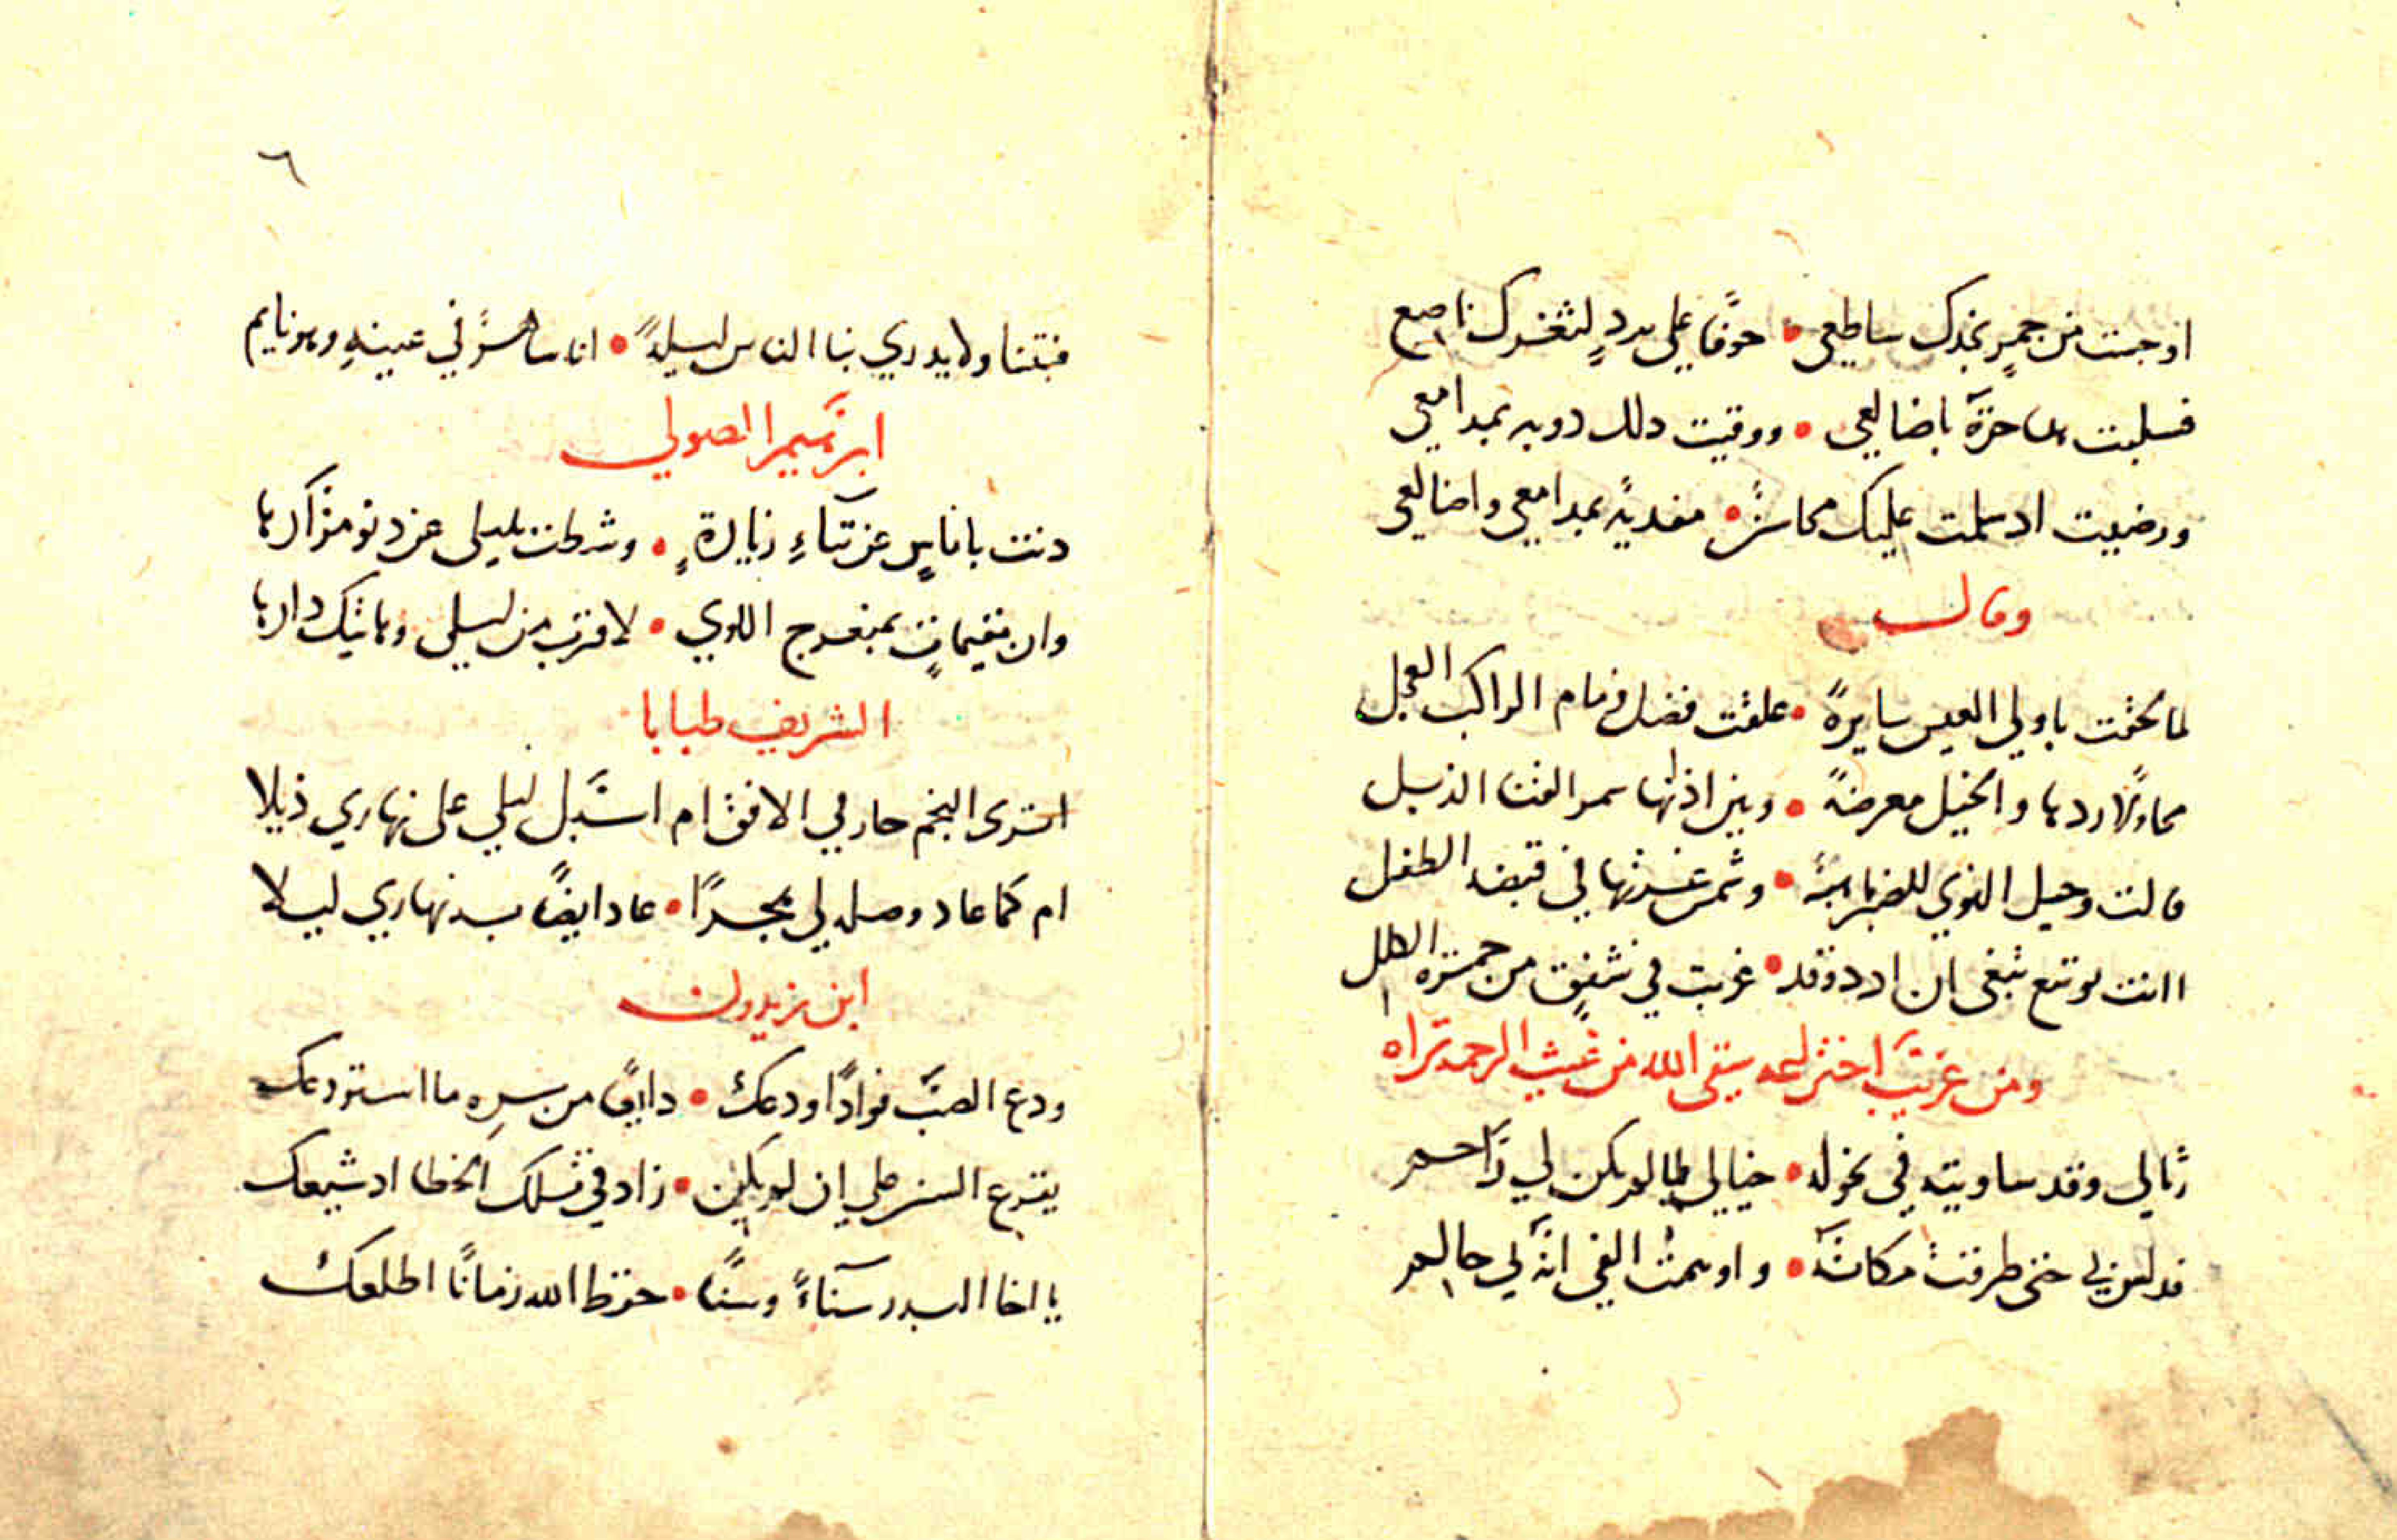 اوجست من جمرٍ بخدك ساطعي • خوفًا على بردٍ لثغرك ناصع
فسلبت حرّة باضالعي • ووقيت ذلك ذوبه بمدامعي
ورضيت اذ سلمت عليك محاسنٌ • مفديةً بمدامعي واضالعي
وقال
لما لحقت باولي العيس سايرةً • علقت فضل زمام الراكب العجل
محاولًا ردها والخيل معرضةً • وبين اذنها سمر القنا الذبل
قالت وخيل النوي للضرب • وشمس غرتها في قبضة الطفل
اانت يوشع تبغي ان اردّ وقد • غربت في شفقٍ من حمرة الكلل
ومن غريب اختراعه سقى الله من غيث الرحمة ثراه
رثالي وقد ساويته في نحوله • خيالي لما لم يكن لي راحم
فدلس بي حتى طرقتُ مكانهُ • واوهمتُ الفي انّه لي حالم
٦
فبتنا ولا يدري بنا الناس ليلةً • انا ساهرٌ في عينهِ وهو نايم
ابرهيم الصولي
دنت باناسٍ عن تناءِ زيارةٍ • وشطت بليلى عن دنو مزارها
وان مقيماتٍ بمنعرج اللوي • لاقرب من ليلى وهاتيك دارها
الشريف طبابا
اترى النجم حار في الافق ام اسبَل ليلي على نهاري ذيلا
ام كما عاد وصله لي هجرًا • عاد ايضًا به نهاري ليلا
ابن زيدون
ودع الصبَّ فوادًا ودعكْ • ذايعًا من سرهِ ما استودعك
يقرع السن على ان لم يكن • زاد في تلك الخطا اذ شيعك
يا اخا البدر سناءً وسنًا • حفظ الله زمانًا اطلعكْ